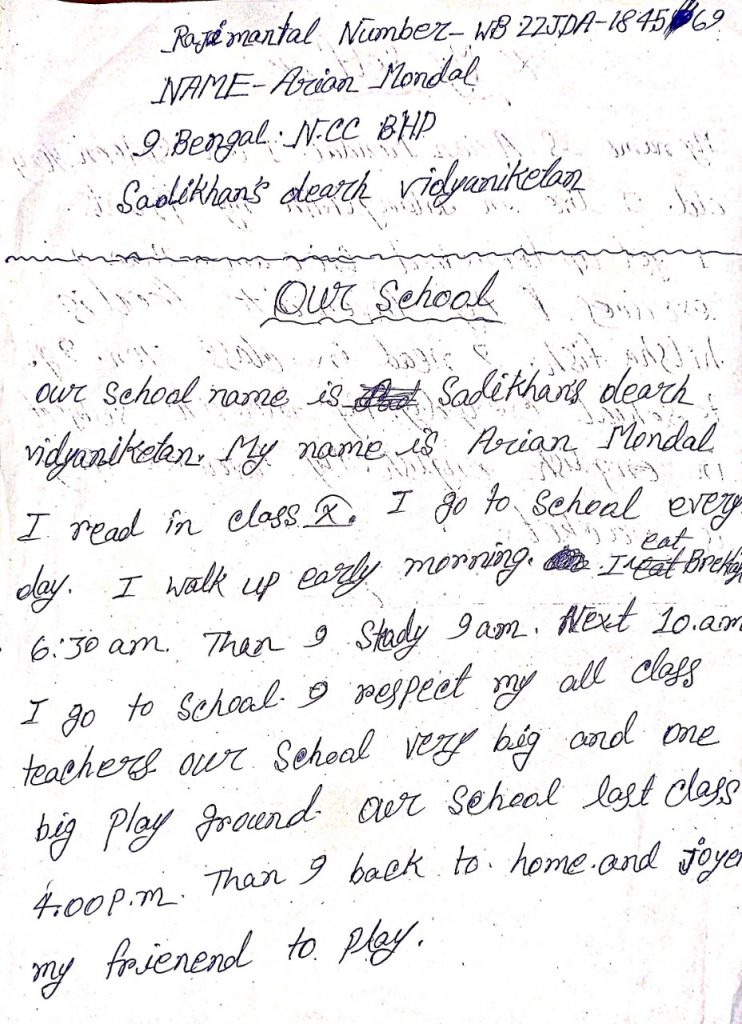 Rajimantal Number- WB 22JDA-1845 69
NAME- Arian Mondal
9 Bengal. N.CC BHP
Sadikhan's dearh vidyaniketan
Our School
our School name is Sadikhan's dearh
vidyaniketan. My name is Arian Mondal
I read in class X. I go to School every
day. I walk up early morning. I eat
6:30 am. Than I Study 9am. Next 10.am
I go to School. I respect my all class
teachers our School very big and one
big Play ground. our School last class
4.00P.m. Than I back to home.and Joye
my frienend to Play.